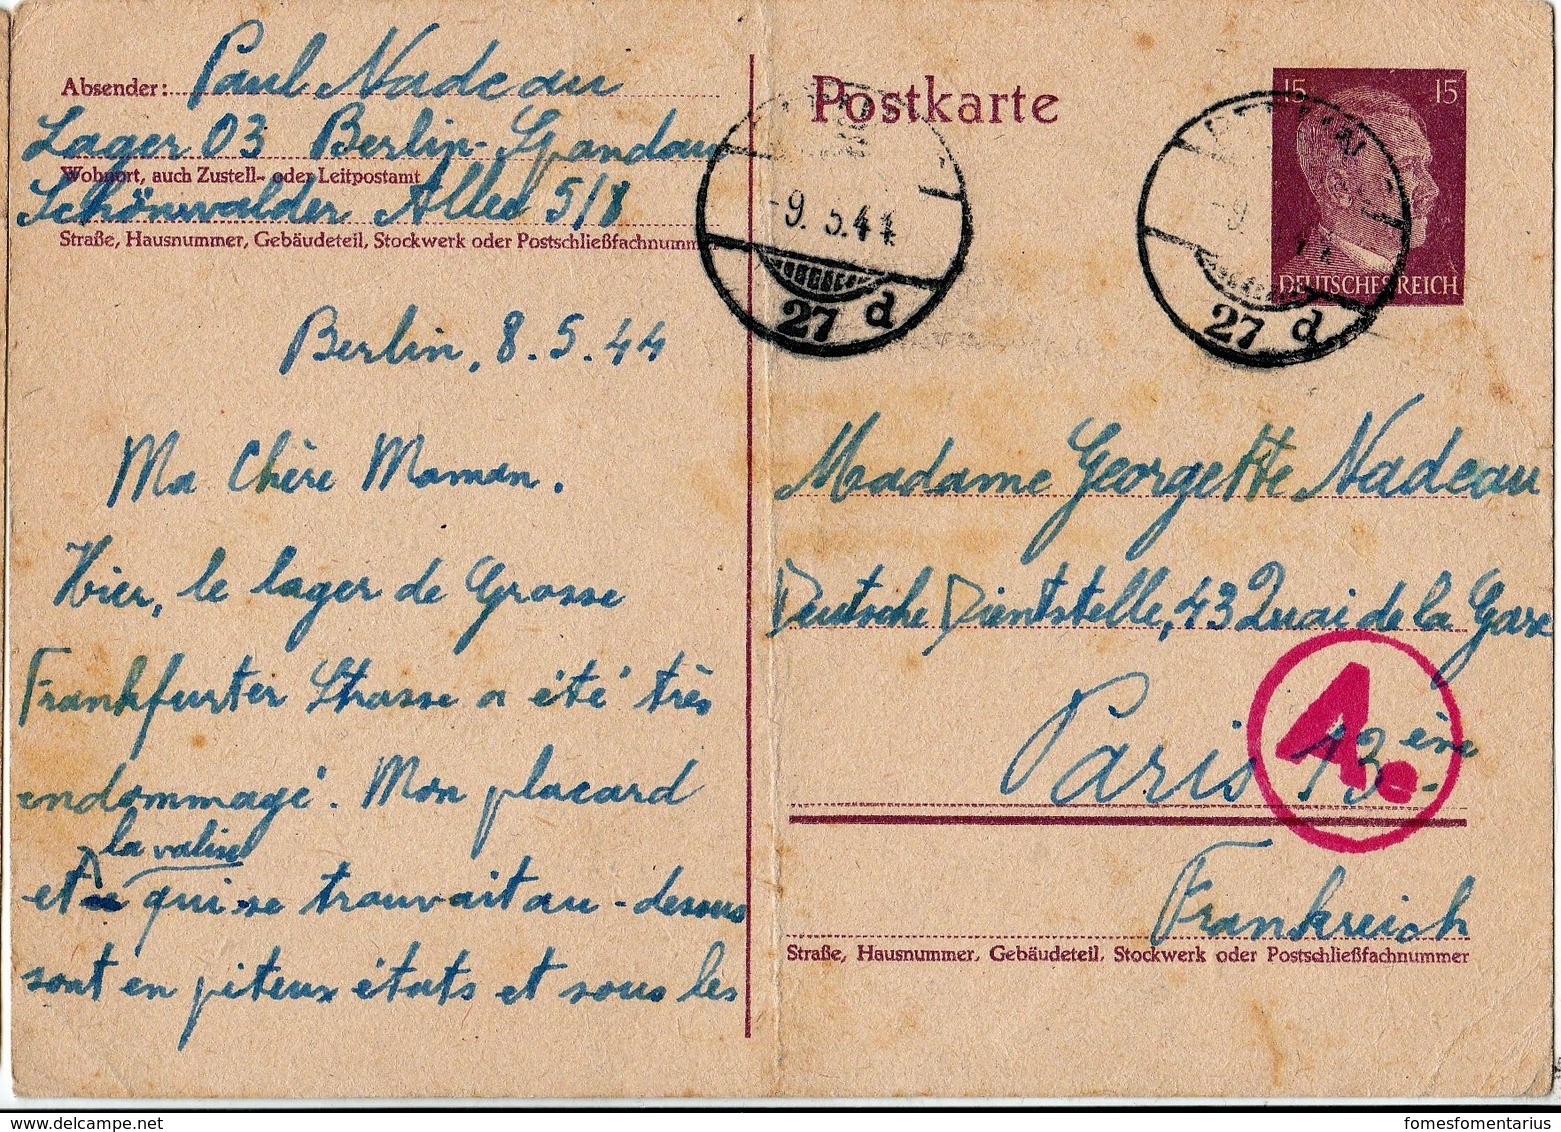 Absender: Paul Nadeau
Lager 03 Berlin-Spandau
Wohnort, auch Zustell- oder Leitpostamt
Schönwalder Allee 5/8
Straße, Hausnummer, Gebäudeteil, Stockwerk oder Postschließfachnumm
Berlin, 8.5.44
Ma Chère Maman.
Hier, le lager de Grosse
Frankfurter Strasse a été très
endommagé. Mon placard
la valise
et qui se trouvait au-dessus
sont en piteux états et sous les
Postkarte
15 15
DEUTSCHES REICH
-9.5.44
27 d
-9.
27 d
Madame Georgette Nadeau
Deutsche Dientstelle, 43 Quai de la Gare
Paris 13ème
Ae
Frankreich
Straße, Hausnummer, Gebäudeteil, Stockwerk oder Postschließfachnummer
fomesfomentarius